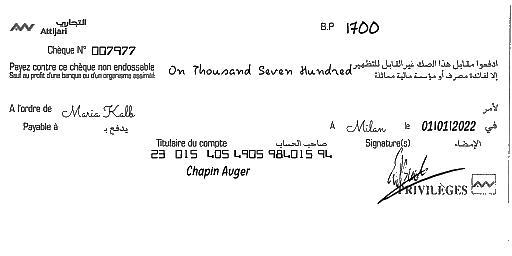 التجاري
Attijari
B.P 1700
Chèque N° 007977
Payez contre ce chèque non endossable
Sauf au profit d'une banque ou d'un organisme assimilé
On Thousand Seven Hundred
ادفعوا مقابل هذا الصك غير القابل للتظهير
إلا لفائدة مصرف أو مؤسسة مالية مماثلة
A l'ordre de Maria Kalb لأمر
Payable à يدفع بـ
A Milan le 01/01/2022 في
Titulaire du compte صاحب الحساب
Signature(s) الإمضاء
23 015 405 4905 984015 94
Chapin Auger
PRIVILÈGES